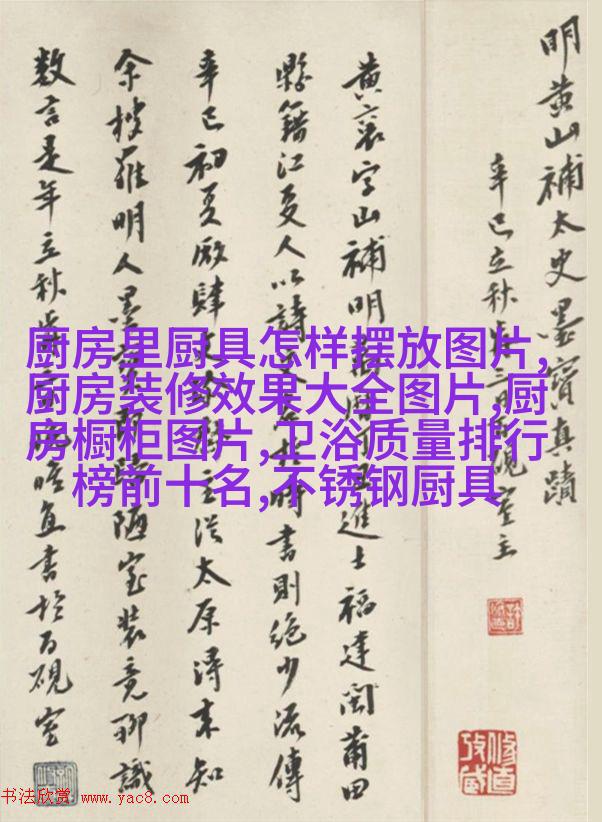 明黄山補太史墨寶真蹟
辛巳立秋三日硯室主
黄襄字山補明進士福建閩莆田
縣籍江夏人以詩時書則絶少流傳
辛巳初夏厰肆主從太原得来知
余搜羅明人墨陋室装竟聊識
数言是年立秋直書於百硯室
厨房里厨具怎样摆放图片,
厨房装修效果大全图片,厨
房橱柜图片,卫浴质量排行
榜前十名,不锈钢厨具
书法欣赏 www.yac8.com